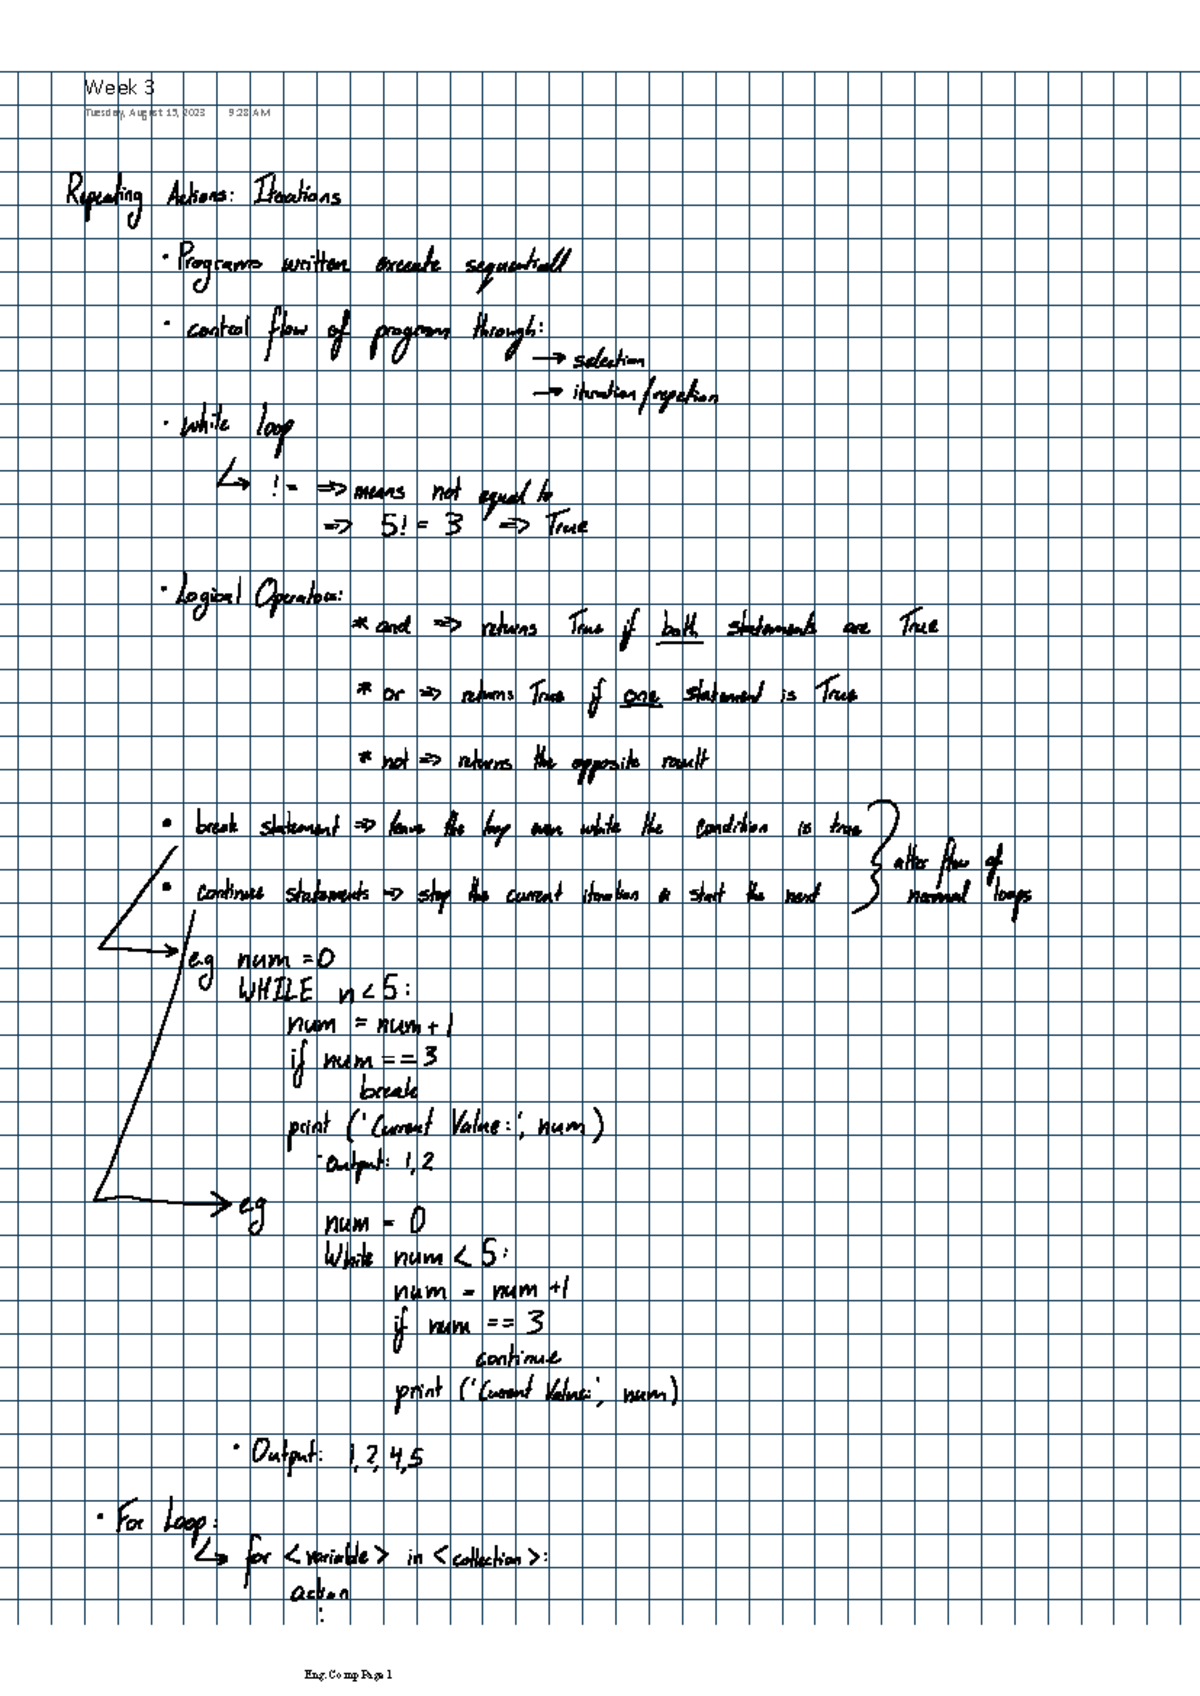 Week 3
Tuesday, August 15, 2023 9:28 AM
Repeating Actions: Iterations
• Programs written execute sequentiall
• control flow of program through:
→ selection
→ iteration/repetion
• While loop
↳ != => means not equal to
=> 5! = 3 => True
• Logical Operators:
* and => returns True if both statements are True
* or => returns True if one statement is True
* not => returns the opposite result
• break statement => leave the loop even while the condition is true
• continue statements => stop the current iteration & start the next
alter flow of
normal loops
e.g num = 0
WHILE n < 5:
num = num + 1
if num == 3
break
print ('Current Value:', num)
• Output: 1, 2
eg
num = 0
While num < 5:
num = num +1
if num == 3
continue
print ('Current Value:', num)
• Output: 1, 2, 4, 5
• For Loop:
↳ for <variable> in <collection>:
action
:
Eng.Comp Page 1